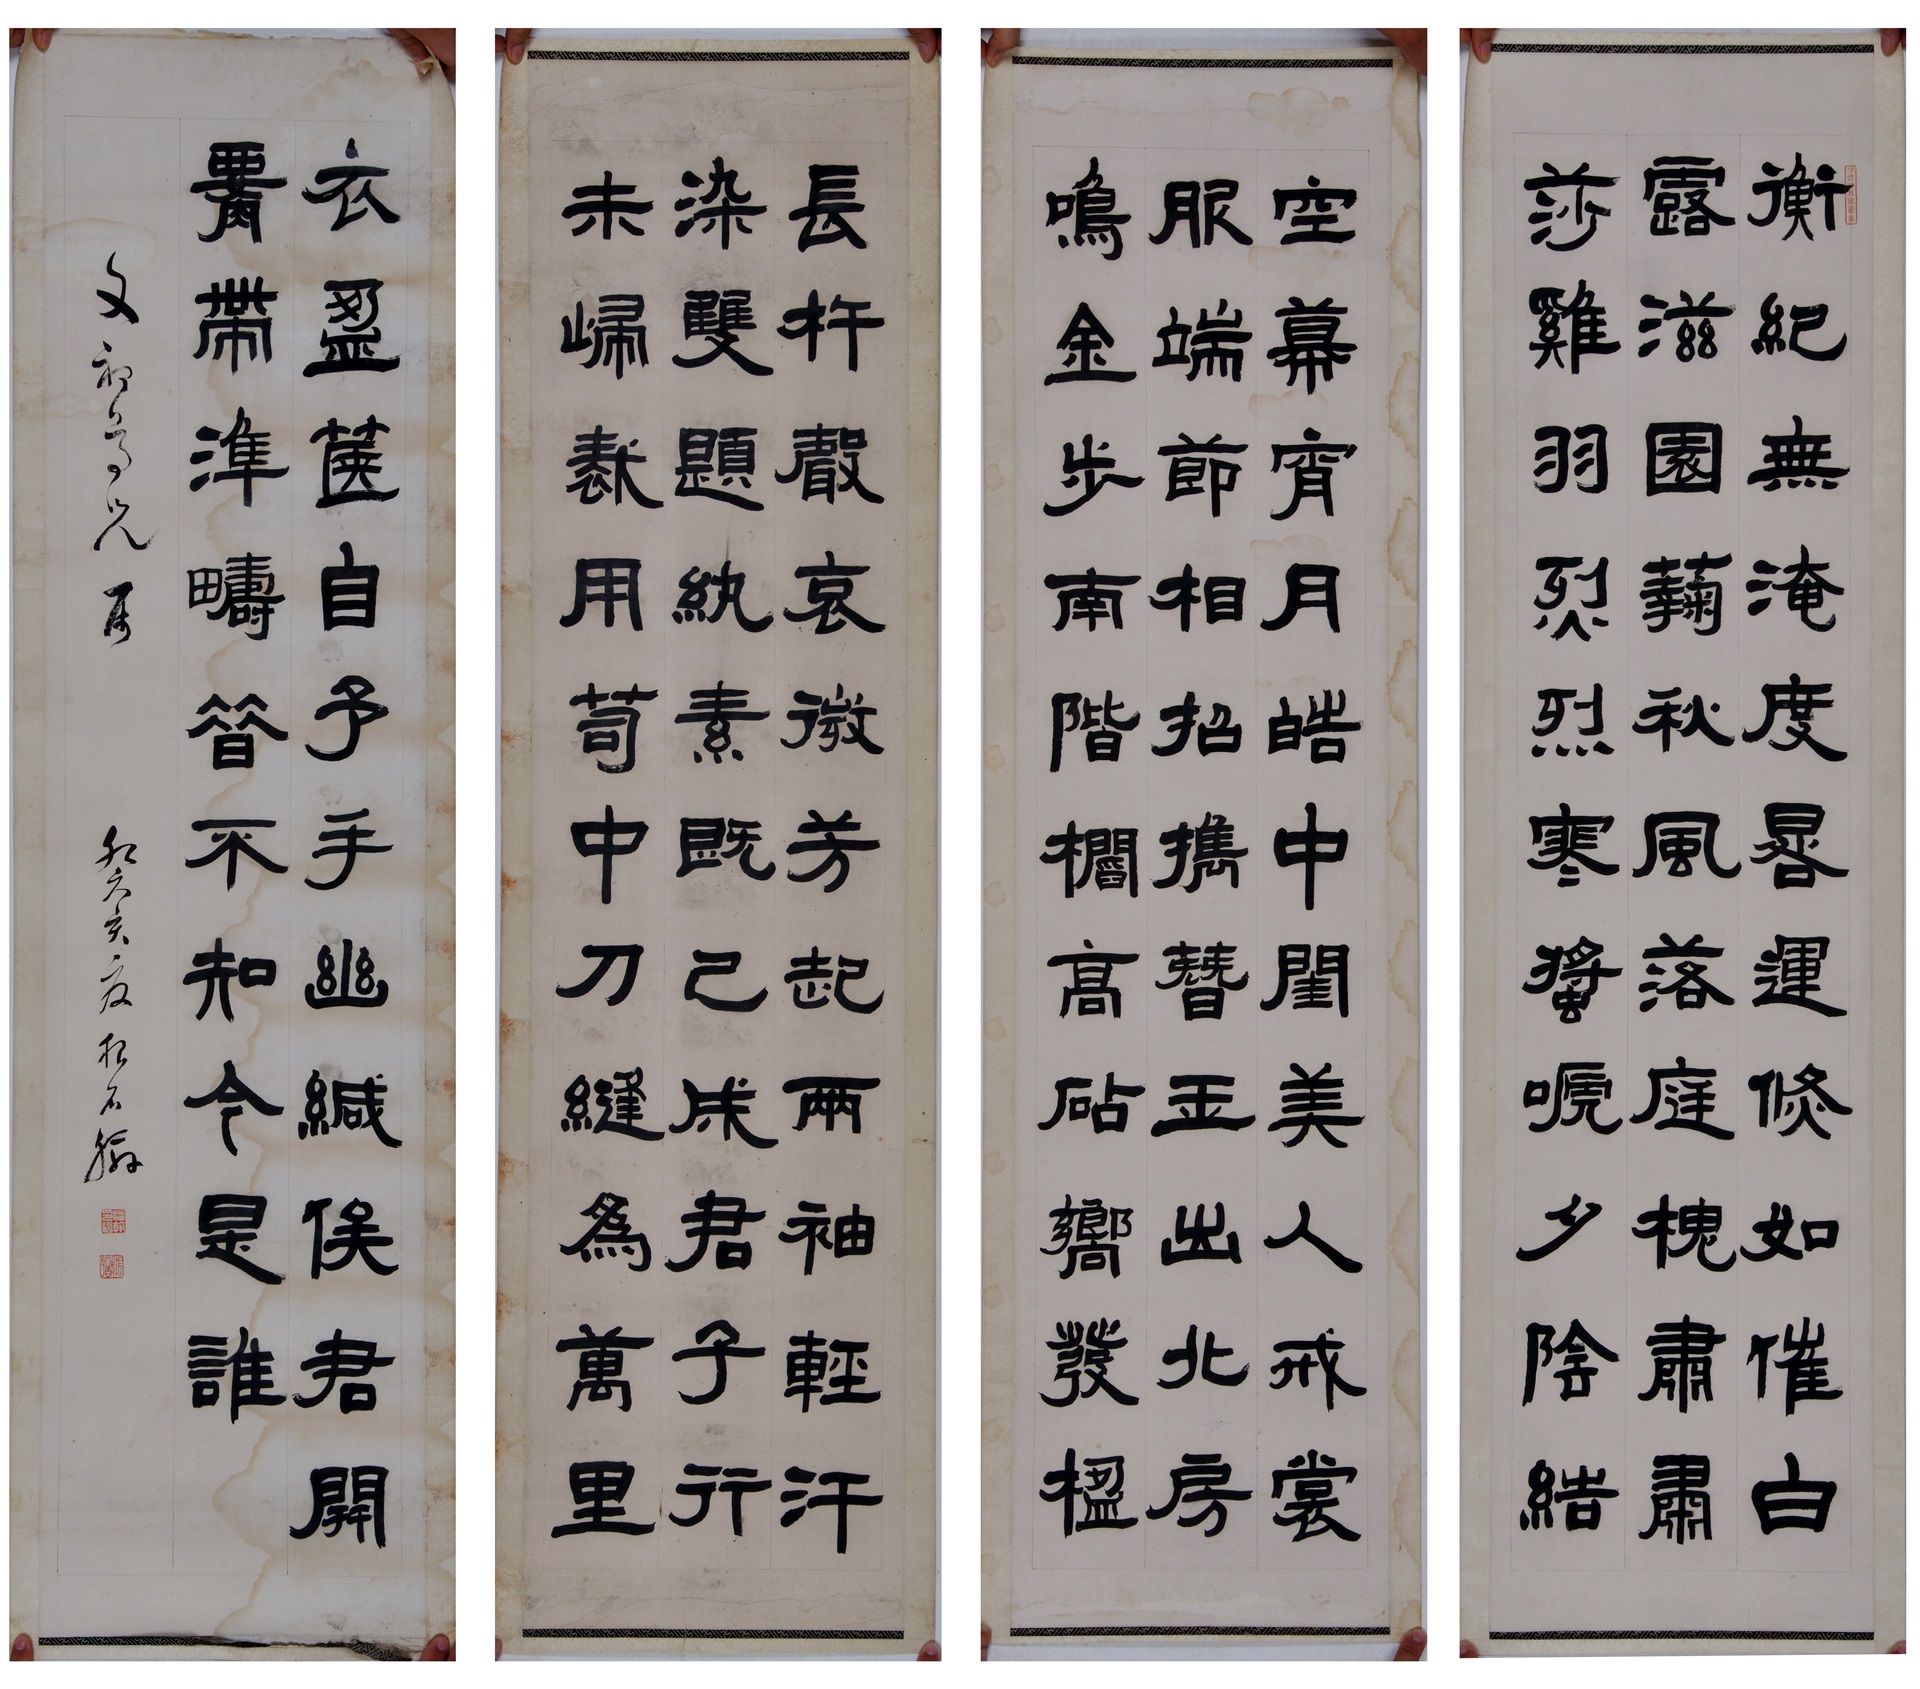 衡紀無淹度晷運倏如催白
露滋園蘜秋風落庭槐肅肅
莎雞羽烈烈寒螿嗁夕陰結
空幕宵月皓中閨美人戒裳
服端節相招攜簪玉出北房
鳴金步南階欄高砧響發楹
長杵聲哀微芳起兩袖輕汗
染雙題紈素既已成君子行
未歸裁用笥中刀縫為萬里
衣盈篋自予手幽緘俟君開
要帶準疇昝不知今是誰
文初尊兄屬
癸亥夏松石